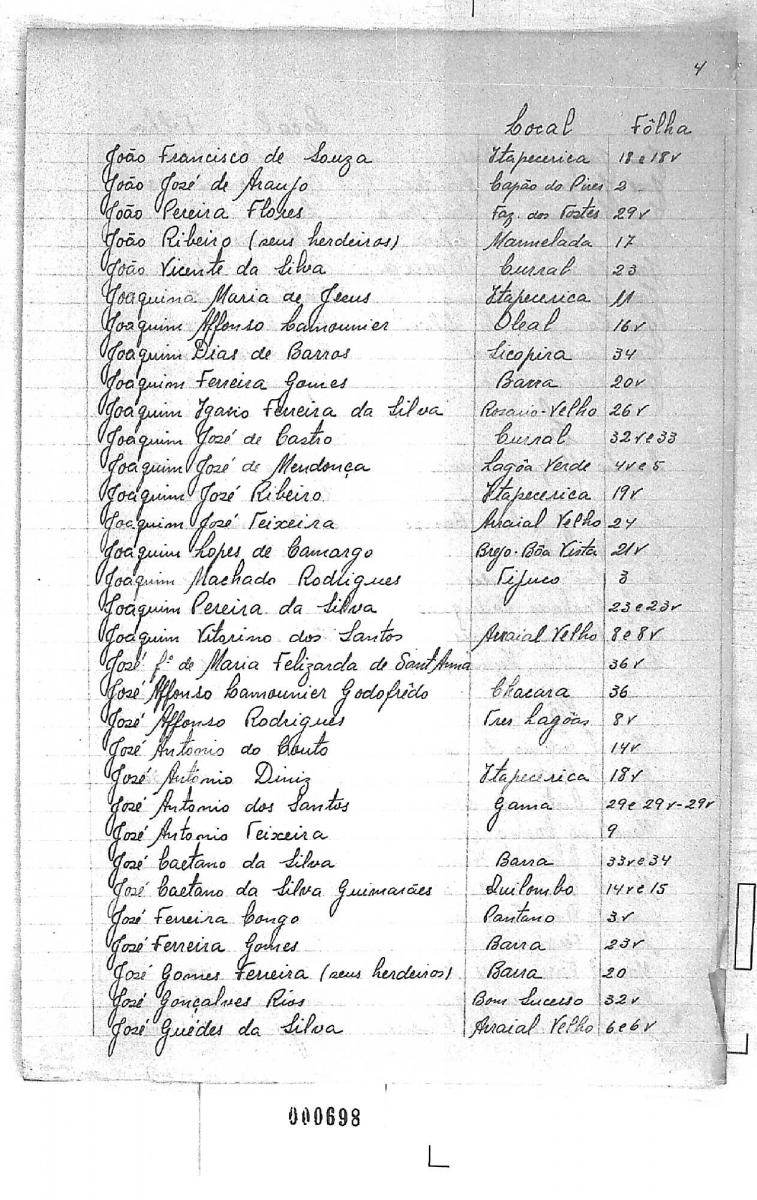 4
Local Fôlha
João Francisco de Souza Itapecerica 18 e 18v
João José de Araujo Capão do Pires 2
João Pereira Flores Faz. dos Fostes 29v
João Ribeiro (seus herdeiros) Marmelada 17
João Vicente da Silva Curral 23
Joaquina Maria de Jesus Itapecerica 11
Joaquim Affonso Camounier Oleal 16v
Joaquim Dias de Barros Sicopira 34
Joaquim Ferreira Gomes Barra 20v
Joaquim Igacio Ferreira da Silva Rosario-Velho 26v
Joaquim José de Castro Curral 32v e 33
Joaquim José de Mendonça Lagôa Verde 4v e 5
Joaquim José Ribeiro Itapecerica 19v
Joaquim José Teixeira Arraial Velho 24
Joaquim Lopes de Camargo Brejo-Bôa Vista 21v
Joaquim Machado Rodrigues Tijuco 3
Joaquim Pereira da Silva 23 e 23v
Joaquim Vitorino dos Santos Arraial Velho 8 e 8v
José fº de Maria Felizarda de Sant'Anna 36v
José Affonso Camounier Godofrêdo Chacara 36
José Affonso Rodrigues Tres Lagôas 8v
José Antonio do Couto 14v
José Antônio Diniz Itapecerica 18v
José Antonio dos Santos Gama 29 e 29v-29v
José Antonio Teixeira 9
José Caetano da Silva Barra 33v e 34
José Caetano da Silva Guimarães Quilombo 14v e 15
José Ferreira Congo Pantano 3v
José Ferreira Gomes Barra 23v
José Gomes Ferreira (seus herdeiros) Barra 20
José Gonçalves Rios Bom Sucesso 32v
José Guédes da Silva Arraial Velho 6 e 6v
000698